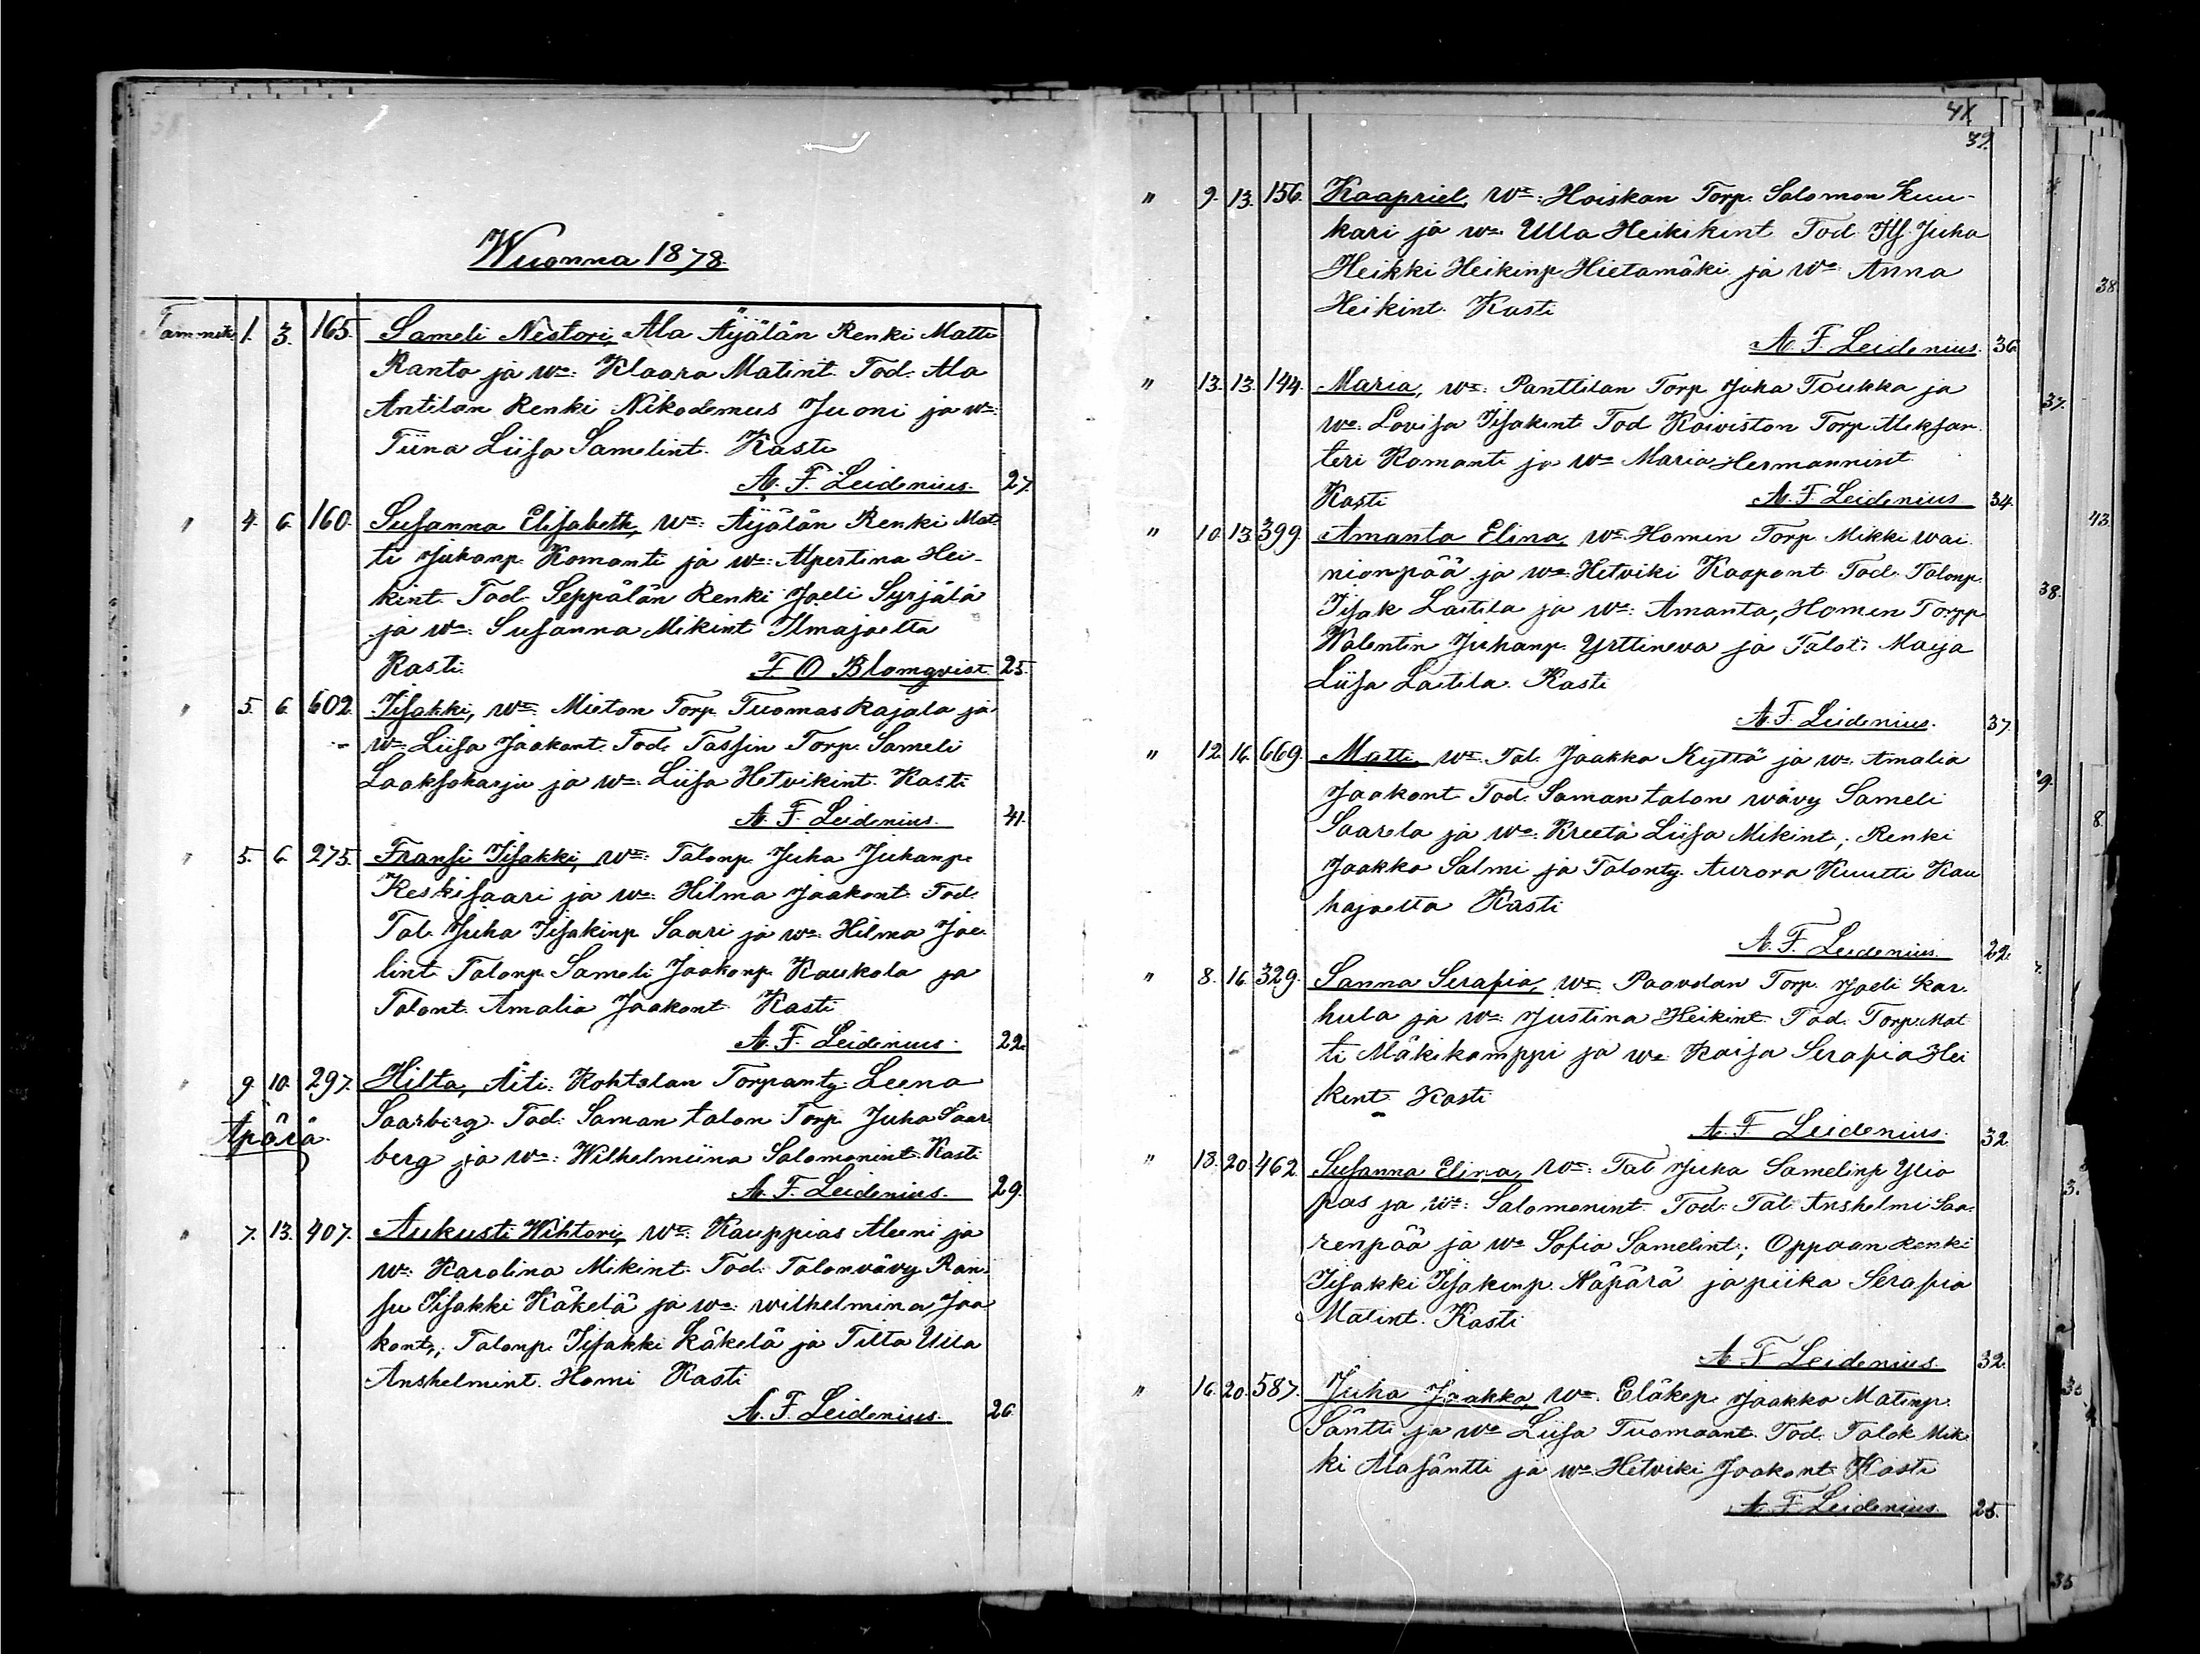 Wuonna 1878.
Tammik. 1. 3. 165. Sameli Nestori, Ala Äijälän Renki Matti
Ranta ja wo: Klaara Matint. Tod. Ala
Antilan Renki Nikodemus Juoni ja wo:
Tiina Liisa Samelint. Kasti
A. F. Leidenius. 27.
" 4. 6. 160. Susanna Elisabeth, Wm: Äijälän Renki Mat-
ti Juhanp. Komanti ja wo: Alpertina Hei-
kint. Tod. Seppälän Renki Joeli Syrjälä
ja wo: Susanna Mikint Ilmajoelta
Kasti. F. O Blomqvist. 25.
" 5. 6. 602. Iisakki, Wm. Mieton Torp. Tuomas Rajala ja
wo: Liisa Jaakont. Tod. Tassin Torp. Sameli
Laaksoharju ja wo: Liisa Hetvikint. Kasti
A. F. Leidenius. 41.
" 5. 6. 275. Fransi Iisakki, Wm: Talonp. Juha Juhanp.
Keskisaari ja wo: Hilma Jaakont. Tod.
Tal. Juha Iisakinp. Saari ja wo: Hilma Joe-
lint Talonp. Sameli Jaakonp. Kaukola ja
Talont. Amalia Jaakont Kasti
A. F. Leidenius. 22.
" 9. 10. 297. Hilta, Äiti: Kohtalan Torpanty: Leena
Saarberg. Tod: Saman talon Torp. Juha Saar-
Äpärä.
berg ja wo: Wilhelmiina Salomonint. Kasti
A. F. Leidenius. 29.
" 7. 13. 407. Aukusti Wihtori, Wm: Kauppias Aleeni ja
wo: Karolina Mikint. Tod: Talonvävy Ran-
su Iisakki Käkelä ja wo: wilhelmina Jaa
kont; Talonp. Iisakki Käkelä ja Tilta Ulla
Anshelmint. Homi Kasti
A. F. Leidenius. 26.
41
39.
" 9. 13. 156. Kaapriel, Wm: Hoiskan Torp. Salomon Kuu-
kari ja wo: Ulla Heikikint Tod. Its. Juha
Heikki Heikinp Hietamäki ja Wo: Anna
Heikint. Kasti
A. F. Leidenius. 36
" 13. 13. 144. Maria, Wm: Panttilan Torp Juha Toukka ja
wo: Lovisa Iisakint Tod Koiviston Torp. Aleksan
teri Komanti ja Wo Maria Hermannint
Kasti A. F. Leidenius 34.
" 10. 13. 399. Amanta Elina, Wm. Homin Torp. Mikki wai
nionpää ja wo. Hetviki Kaapont. Tod. Talonp.
Iisak Laitila ja wo: Amanta, Homen Torpp
Walentin Juhanp. Yrttineva ja Talot. Maija
Liisa Laitila. Kasti
A. F. Leidenius. 37.
" 12. 16. 669. Matti, Wm. Tal. Jaakko Kyttä ja wo. Amalia
Jaakont Tod. Saman talon wävy Sameli
Saarela ja wo: Kreeta Liisa Mikint; Renki
Jaakko Salmi ja Talonty. Aurora Kuutti Kau
hajoelta Kasti
A. F. Leidenius. 22.
" 8. 16. 329. Sanna Serafia, Wm. Paavolan Torp. Joeli Kar-
hula ja wo: Justina Heikint Tod. Torp. Mat
ti Mäkikamppi ja wo. Kaisa Serafia Hei
kint Kasti
A. F. Leidenius. 32.
" 18. 20. 462. Susanna Elina, Wm: Tal Juha Samelinp Ylio
pas ja wo: Salomonint. Tod: Tal. Anshelmi Saa-
renpää ja wo Sofia Samelint; Oppaan Renki
Iisakki Iisakinp. Näpärä ja piika Serafia
Matint. Kasti
A. F. Leidenius. 32.
" 16. 20. 587. Juha Jaakko, Wm. Eläkep. Jaakko Matinp.
Säntti ja wo Liisa Tuomaant. Tod. Talok Mik-
ki Alasäntti ja wo. Hetviki Jaakont. Kasti
A. F. Leidenius. 25.